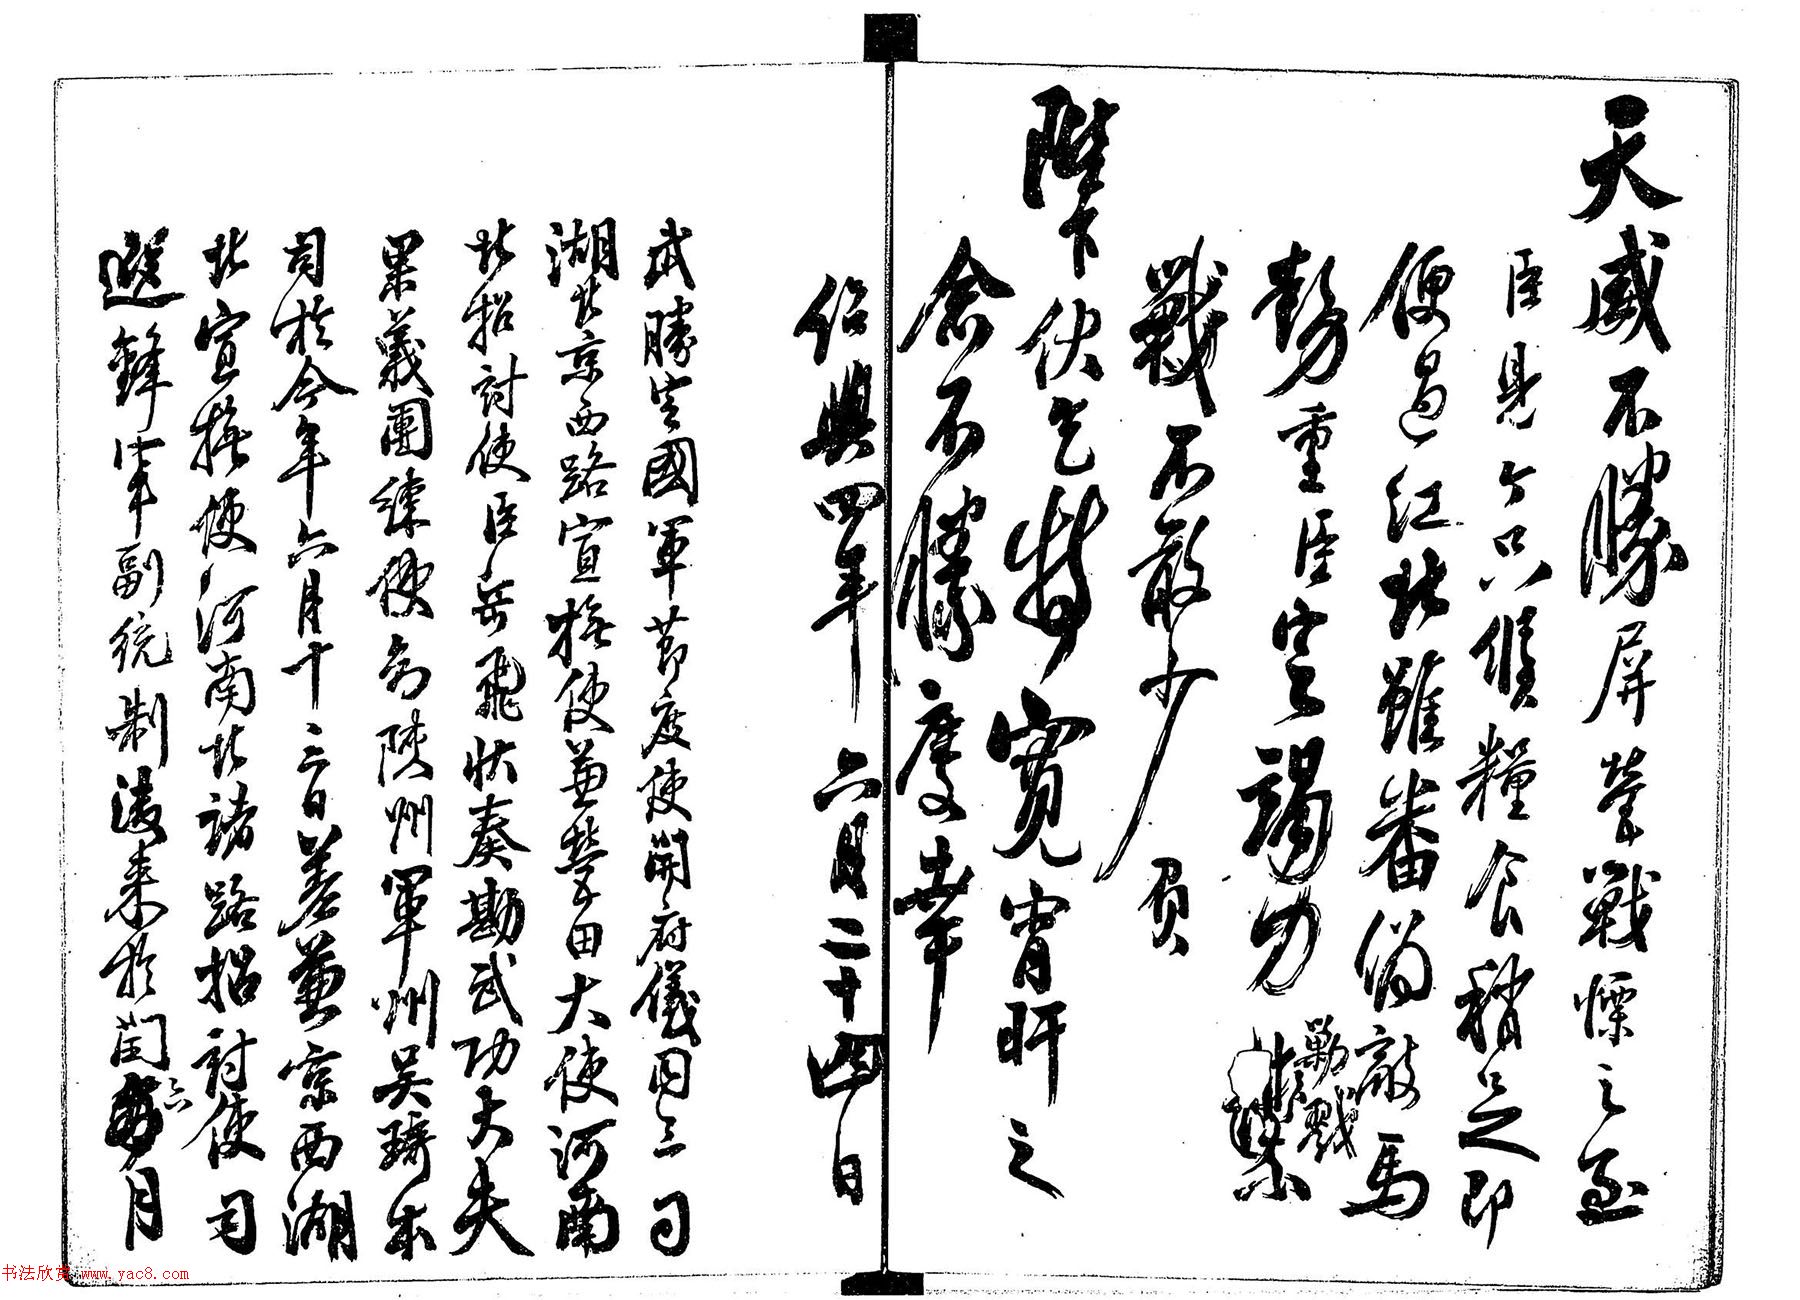 天威不勝屏營戰慄之至
臣見今只候糧食稍足即
便過江北雖番偽敵馬
勢重臣定竭力
勦戮
戰不敢少負
陛下伏乞特寬宵旰之
念不勝慶幸
紹興四年六月二十四日
武勝定國軍節度使開府儀同三司
湖北京西路宣撫使兼營田大使河南
北招討使臣岳飛狀奏勘武功大夫
果義團練使知陝州軍州吳琦本
司於今年六月十三日差兼京西湖
北宣撫使河南北諸路招討使司
選鋒軍副統制後来於閏六月
书法欣赏 www.yac8.com